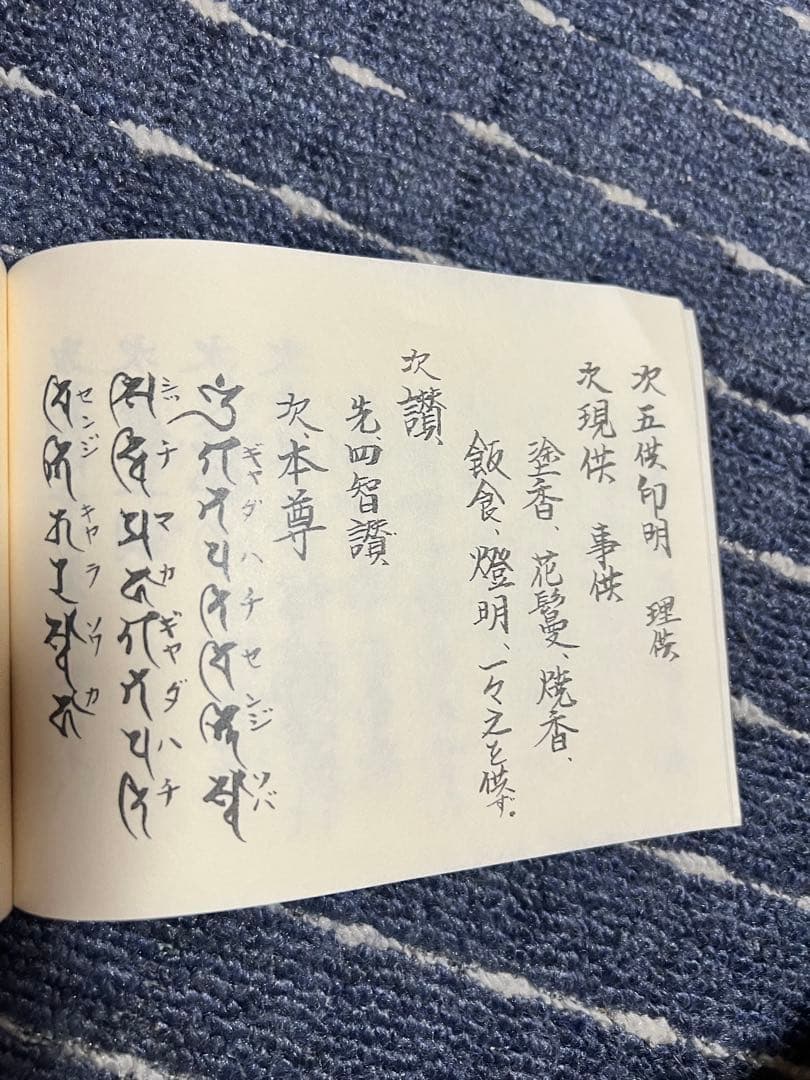 次五供印明　理供
次現供　事供
塗香、花鬘、焼香、
飯食、燈明、一々之を供ず。
次讃、
先、四智讃
次、本尊
ギャダハチセンジソバ
シッチマカギャダハチ
センジキャラソワカ